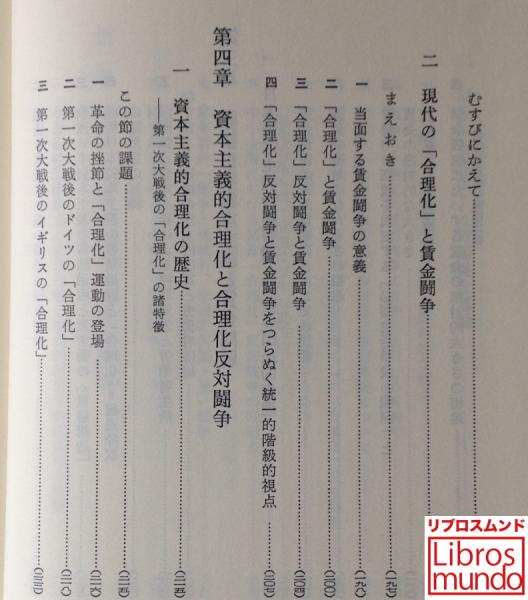 むすびにかえて
二 現代の「合理化」と賃金闘争
まえおき (一九七)
一 当面する賃金闘争の意義 (一九八)
二 「合理化」と賃金闘争 (二〇〇)
三 「合理化」反対闘争と賃金闘争 (二〇四)
四 「合理化」反対闘争と賃金闘争をつらぬく統一的階級的視点 (二〇七)
第四章 資本主義的合理化と合理化反対闘争
一 資本主義的合理化の歴史 (二一五)
——第一次大戦後の「合理化」の諸特徴
この節の課題 (二一五)
一 革命の挫節と「合理化」運動の登場 (二一六)
二 第一次大戦後のドイツの「合理化」 (二一八)
三 第一次大戦後のイギリスの「合理化」
リブロスムンド
Libros
mundo